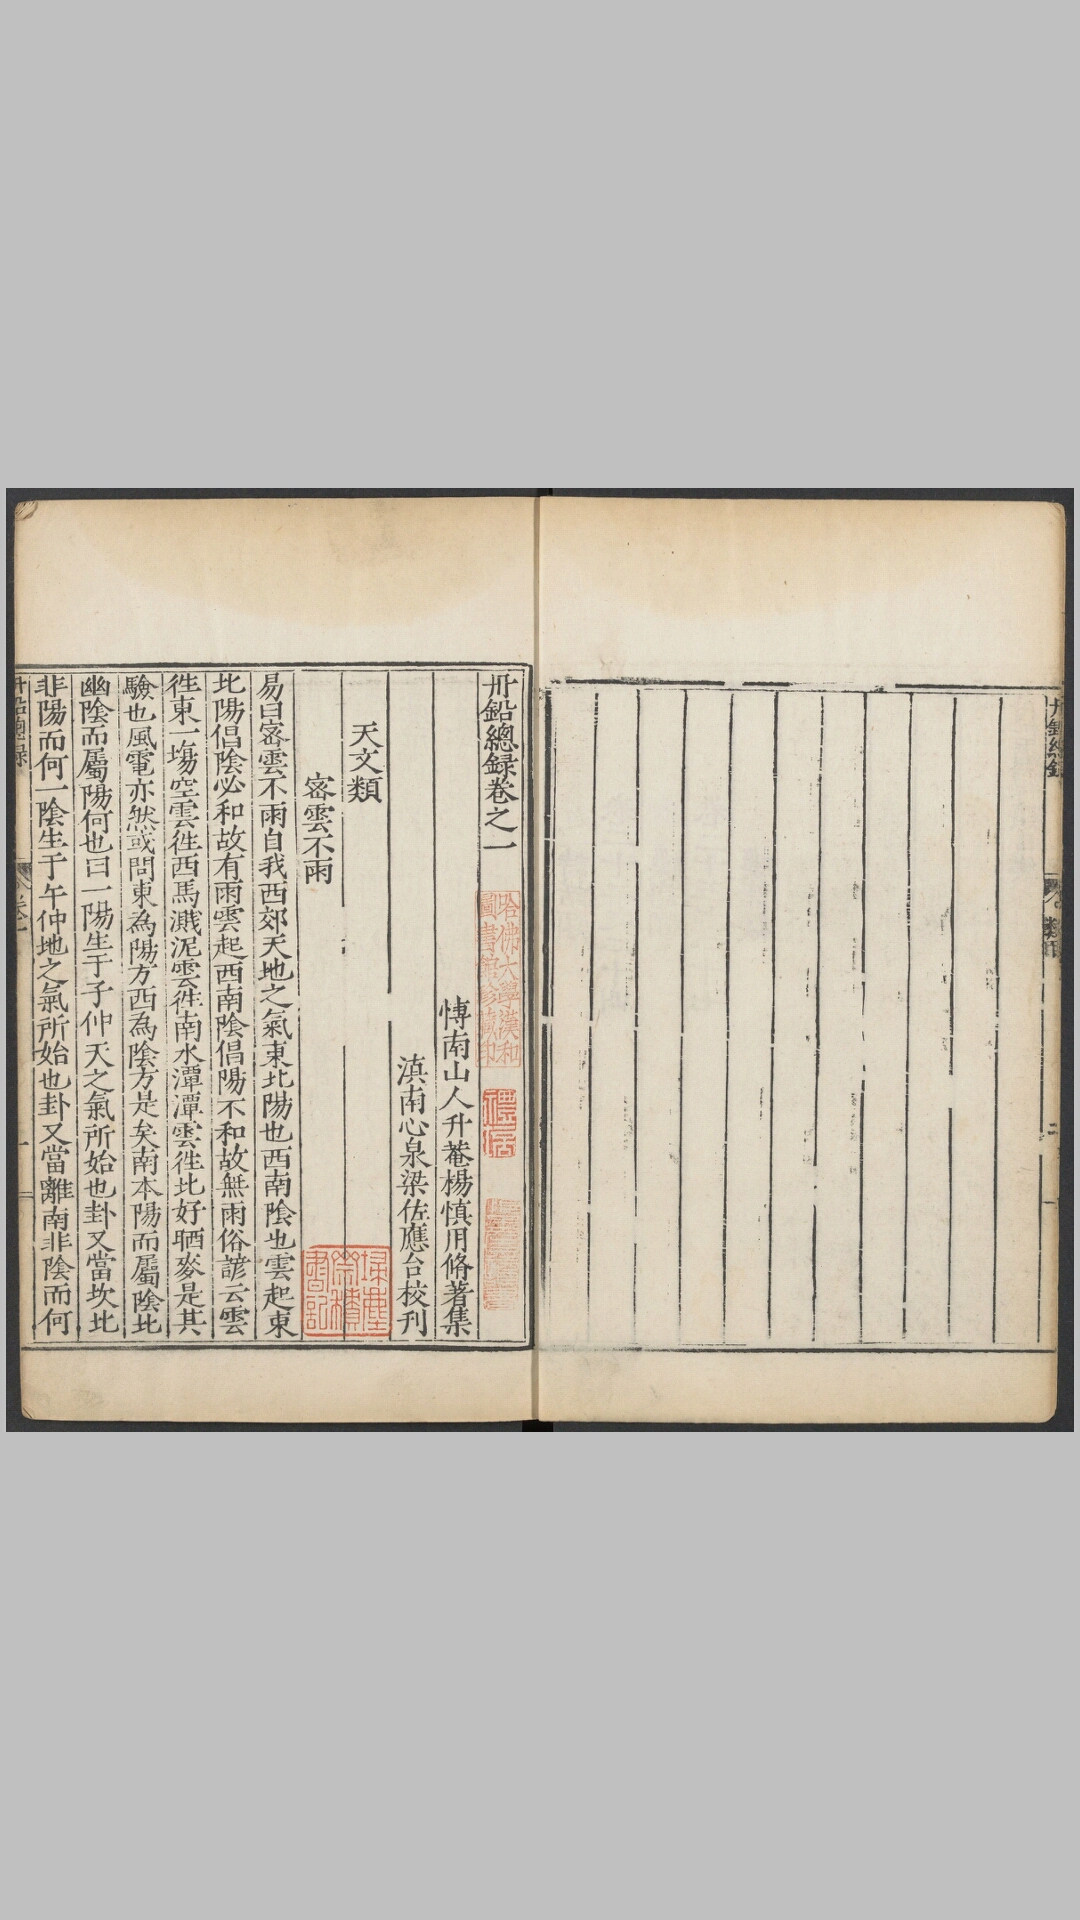 丹鉛總録
丹鉛總録卷之一
哈佛大學漢和
圖書館珍藏印
博南山人升菴楊慎用脩著集
滇南心泉梁佐應台校刊
天文類
密雲不雨
易曰密雲不雨自我西郊天地之氣東北陽也西南陰也雲起東
北陽倡陰必和故有雨雲起西南陰倡陽不和故無雨俗諺云雲
徃東一塲空雲徃西馬濺泥雲徃南水潭潭雲徃北好晒麥是其
驗也風電亦然或問東為陽方西為陰方是矣南本陽而屬陰北
幽陰而屬陽何也曰一陽生于子仲天之氣所始也卦又當坎北
非陽而何一陰生于午仲地之氣所始也卦又當離南非陰而何
丹鉛總録
卷一
一